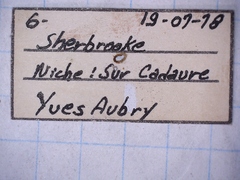 6- 19-07-78
Sherbrooke
Niche: Sur Cadavre
Yves Aubry